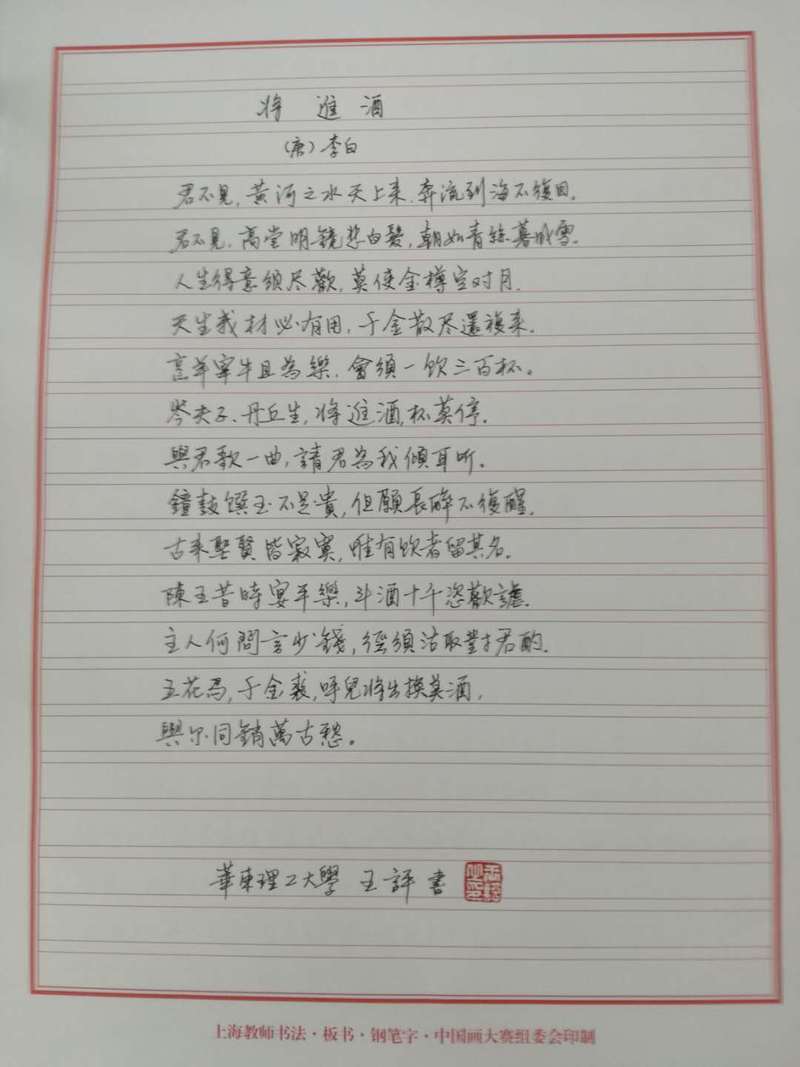 将進酒
(唐)李白
君不見,黄河之水天上来.奔流到海不復回.
君不見.高堂明鏡悲白髮,朝如青絲暮成雪.
人生得意須尽歡,莫使金樽空对月.
天生我材必有用,千金散尽還復来.
烹羊宰牛且為樂.會須一飲三百杯。
岑夫子.丹丘生,将進酒,杯莫停.
與君歌一曲,請君為我傾耳听.
鐘鼓饌玉不足貴,但願長醉不復醒.
古来聖賢皆寂寞,惟有飲者留其名.
陳王昔時宴平樂,斗酒十千恣歡謔.
主人何問言少錢,徑須沽取對君酌.
五花馬,千金裘,呼兒将出換美酒,
與尔同銷萬古愁。
華東理工大學 王評書
上海教师书法·板书·钢笔字·中国画大赛组委会印制